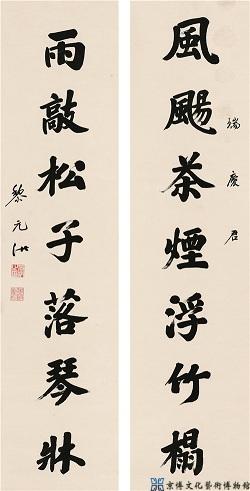 瑞慶君
風颺茶煙浮竹榻
雨敲松子落琴牀
黎元洪
京博文化藝術博物館